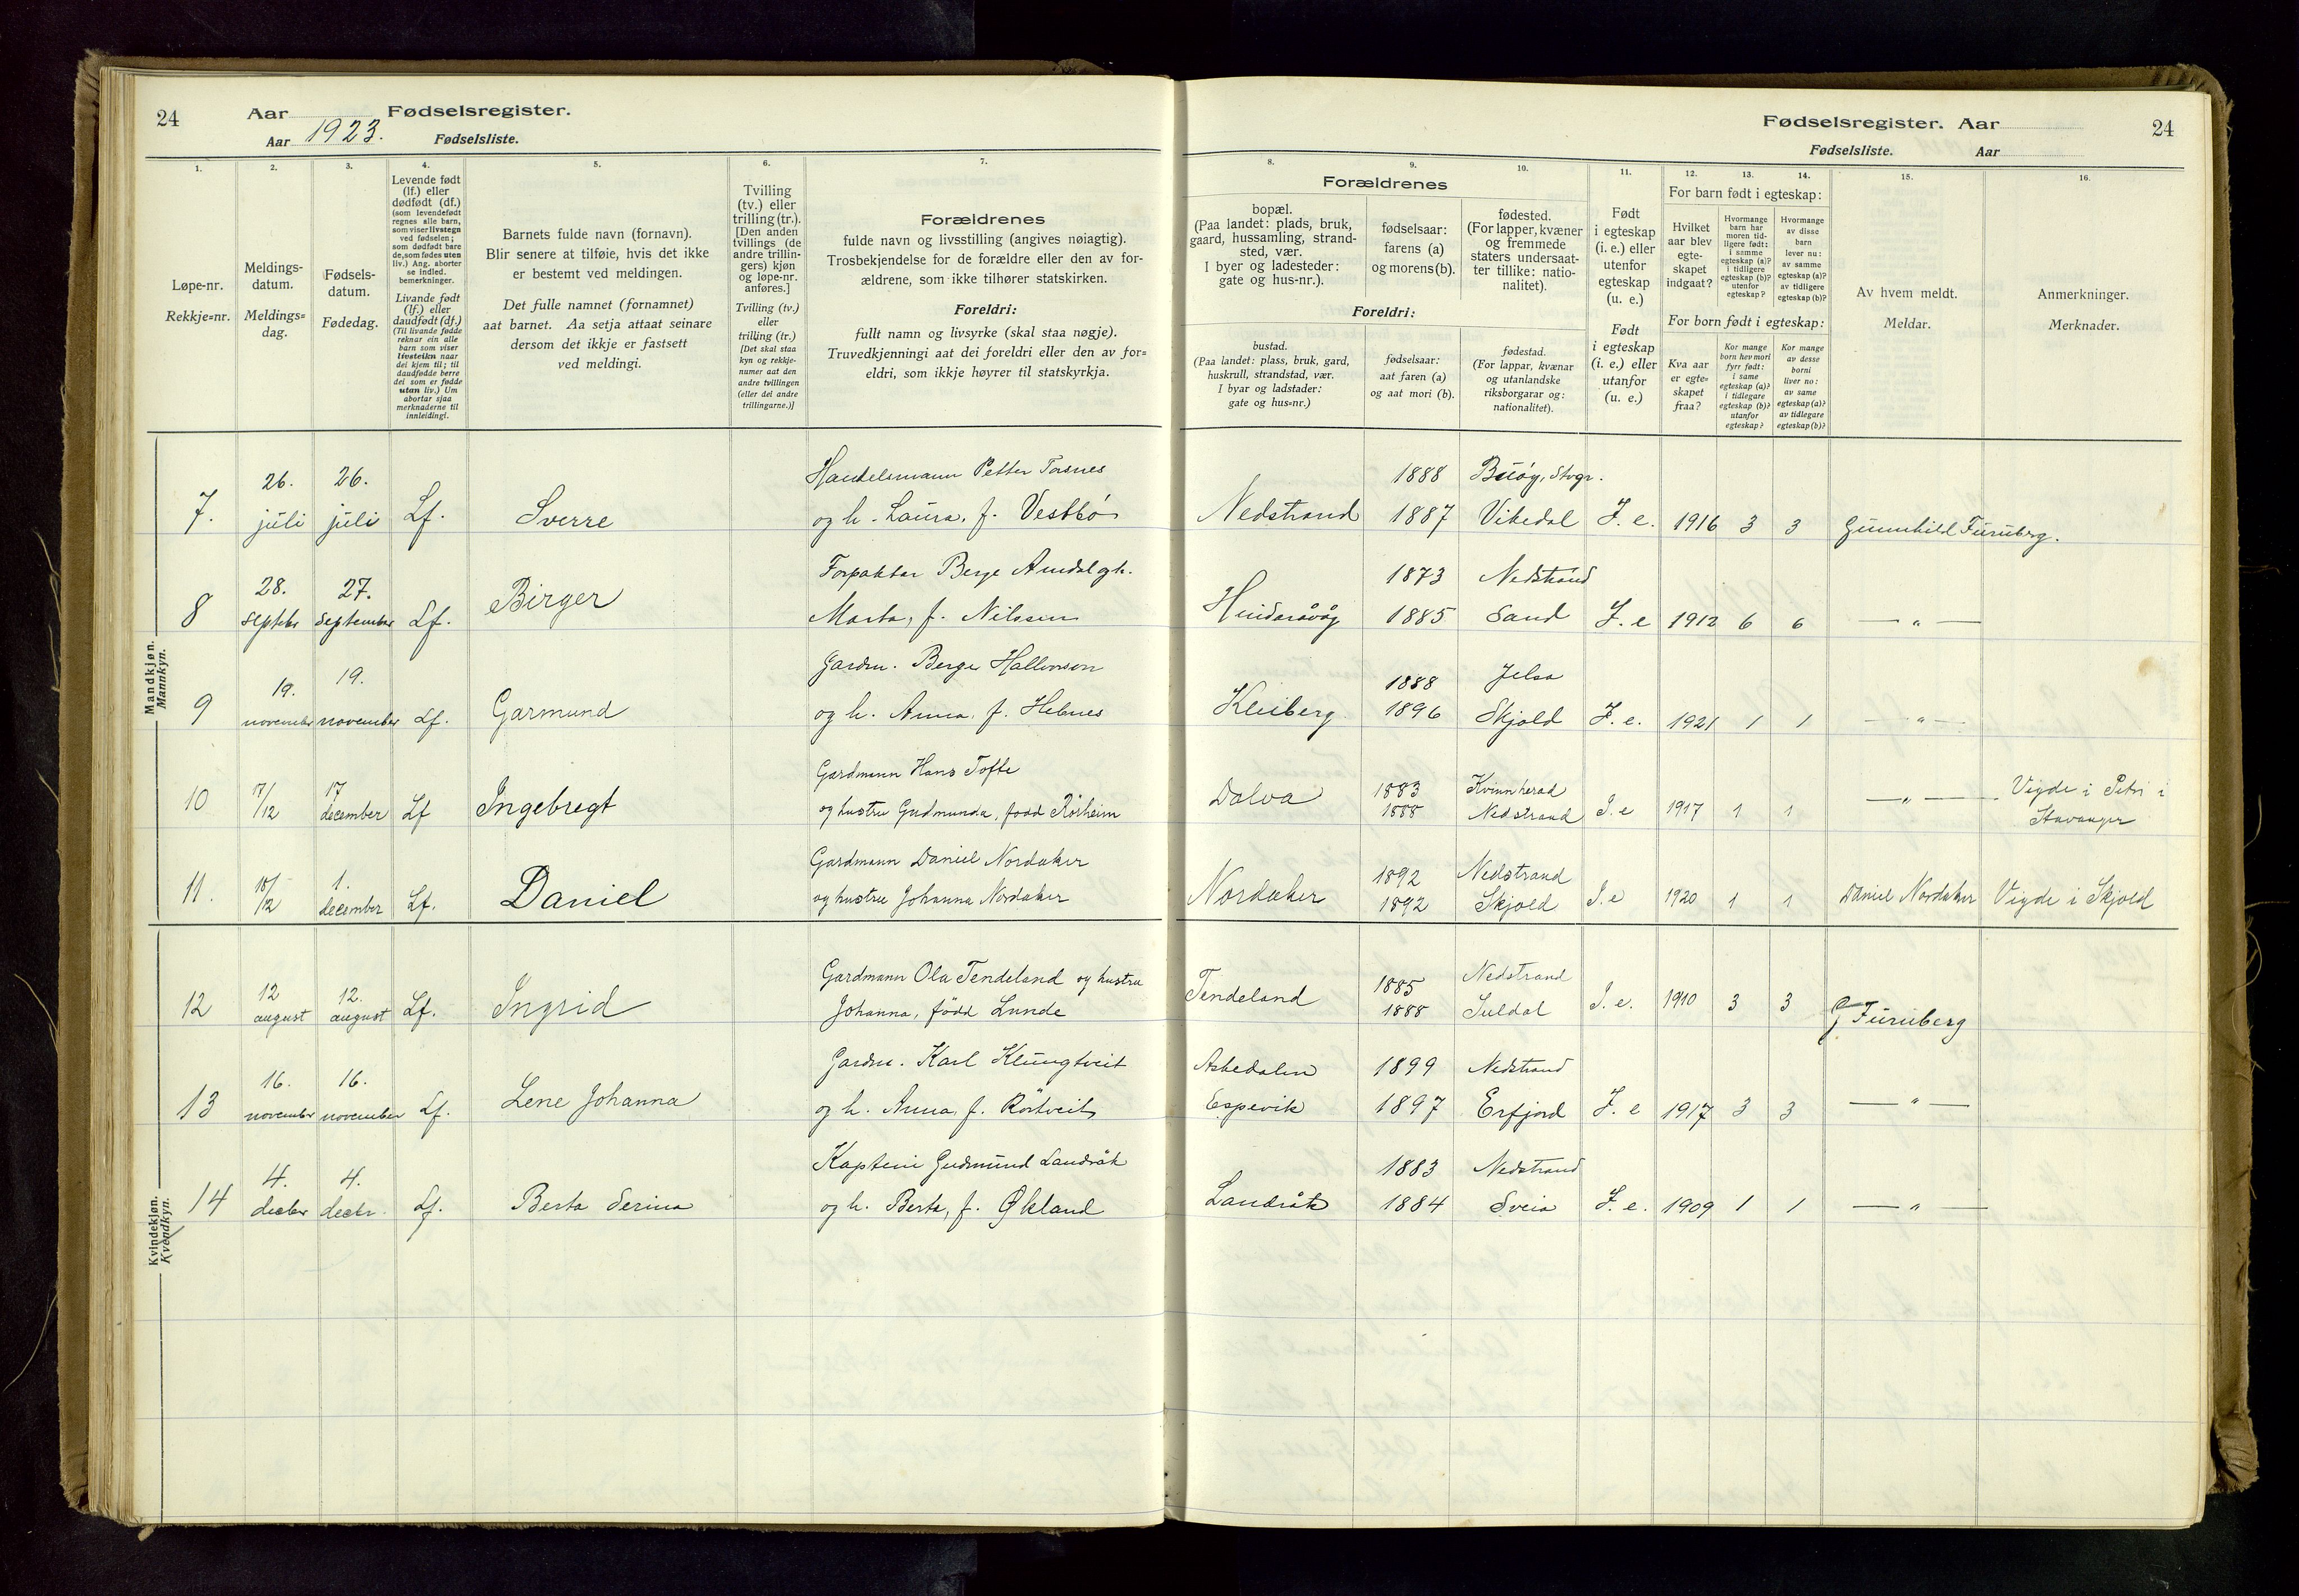 24
Aar
Fødselsregister.
Aar 1923.
Fødselsliste.
1.
Løpe-nr.
Rekkje=nr.
2.
Meldings-
datum.
Meldings=
dag.
3.
Fødsels-
datum.
Fødedag.
4.
Levende født
(lf.) eller
dødfødt (df.)
(som levendefødt
regnes alle barn,
som viser livstegn
ved fødselen;
som dødfødt bare
de, som fødes uten
liv.) Ang. aborter
se indled.
bemerkninger.
Livande født
(lf.) eller
daudfødt (df.)
(Til livande fødde
reknar ein alle
barn som viser
livsteikn naar
dei kjem til; til
daudfødde berre
dei som er fødde
utan liv.) Um
abortar sjaa
merknaderne til
innleiding!.
5.
Barnets fulde navn (fornavn).
Blir senere at tilføie, hvis det ikke
er bestemt ved meldingen.
Det fulle namnet (fornamnet)
aat barnet. Aa setja attaat seinare
dersom det ikkje er fastsett
ved meldingi.
6.
Tvilling
(tv.) eller
trilling (tr.).
[Den anden
tvillings (de
andre trillin-
gers) kjøn
og løpe-nr.
anføres.]
Tvilling (tv.)
eller
trilling (tr.)
[Det skal staa
kyn og rekkje-
numer aat den
andre tvillingen
(eller dei andre
trillingarne.)]
7.
Forældrenes
fulde navn og livsstilling (angives nøiagtig).
Trosbekjendelse for de forældre eller den av for-
ældrene, som ikke tilhører statskirken.
Foreldri:
fullt namn og livsyrke (skal staa nøgje).
Truvedkjenningi aat dei foreldri eller den av for=
eldri, som ikkje høyrer til statskyrkja.
Mandkjøn.
Mannkyn.
7. 26. juli 26. juli Lf. Sverre
Handelsmann Petter Torsnes
og h. Laura, f. Vestbö
8 28. septbr 27. september Lf. Birger
Forpaktar Berge Amdal og h.
Marta, f. Nilssen
9 19. november 19. november Lf. Garmund
Gardm. Berge Hallvorson
og h. Anna, f. Hebnes
10 17/12 17 december Lf Ingebregt
Gardmann Hans Tofte
og hustru Gudmunda, fødd Rörheim
11. 18/12 1. december Lf. Daniel
Gardmann Daniel Nordaker
og hustru Johanna Nordaker
Kvindekjøn.
Kvendkyn.
12 12 august 12. august Lf. Ingrid
Gardmann Ola Tendeland og hustru
Johanna, född Lunde
13 16. november 16. november Lf. Lene Johanna
Gardm. Karl Klungtveit
og h. Anna, f. Röstveit
14 4. decbr 4. decbr. Lf. Berta Serina
Kaptein Gudmund Landråk
og h. Berta, f. Økland
Fødselsregister. Aar
24
Fødselsliste.
Aar
8.
Forældrenes
bopæl.
(Paa landet: plads, bruk,
gaard, hussamling, strand-
sted, vær.
I byer og ladesteder:
gate og hus-nr.).
Foreldri:
bustad.
(Paa landet: plass, bruk, gard,
huskrull, strandstad, vær.
I byar og ladstader:
gate og hus=nr.)
9.
fødselsaar:
farens (a)
og morens (b).
fødselsaar:
aat faren (a)
og aat mori (b).
10.
fødested.
(For lapper, kvæner
og fremmede
staters undersaat-
ter tillike: natio-
nalitet).
fødestad.
(For lappar, kvænar
og utanlandske
riksborgarar og:
nationalitet).
11.
Født
i egteskap
(i. e.) eller
utenfor
egteskap
(u. e.)
Født
i egteskap
(i. e.) eller
utanfor
(u. e.)
12.
For barn født i egteskap:
Hvilket
aar blev
egte-
skapet
indgaat?
For born født i egteskap:
Kva aar
er egte=
skapet
fraa?
13.
Hvormange
barn har
moren tid-
ligere født:
i samme
egteskap (a)?
i tidligere
egteskap (b)?
utenfor
egteskap?
Kor mange
born hev mori
fyrr født:
i same
egteskap (a)?
i tidlegare
egteskap (b)?
utanfor
egteskap?
14.
Hvormange
av disse
barn
lever nu:
av samme
egteskap (a)?
av tidligere
egteskap (b)?
Kor mange
av desse
borni
liver no:
av same
egteskap (a)?
av tidlegare
egteskap (b)?
15.
Av hvem meldt.
Meldar.
16.
Anmerkninger.
Merknader.
1888 Buöy, Stvgr.
Nedstrand 1887 Vikedal I. e. 1916 3 3 Gunnhild Furuberg.
1873 Nedstrand
Hinderåvåg 1885 Sand I. e 1912 6 6 — " —
1888 Jelsa
Kleiberg 1896 Skjold I. e. 1921 1 1 — " —
Dalva 1883 Kvinnherad
1888 Nedstrand I. e 1917 1 1 — " — Vigde i Petri i
Stavanger
1892 Nedstrand
Nordaker 1892 Skjold I. e 1920 1 1 Daniel Nordaker Vigde i Skjold
Tendeland 1885 Nedstrand
1888 Suldal I. e. 1910 3 3 G Furuberg
Askedalen 1899 Nedstrand
Espevik 1897 Erfjord I. e 1917 3 3 — " —
1883 Nedstrand
Landråk 1884 Sveio I. e. 1909 1 1 — " —